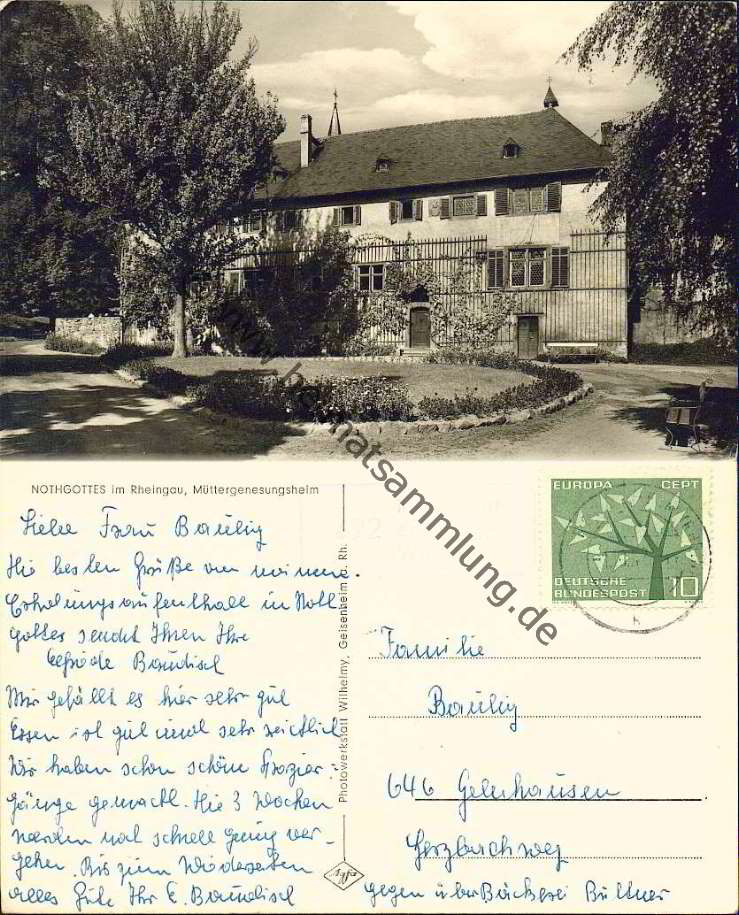 www.heimatsammlung.de
NOTHGOTTES im Rheingau, Müttergenesungsheim
Liebe Frau Baulig
Die besten Grüße von meinem
Erholungsaufenthalt in Noth
gottes sendet Ihnen Ihre
Baudisch
Mir gefällt es hier sehr gut
Essen ist gut und sehr reichlich
Wir haben schon schöne Spazier-
gänge gemacht. Die 3 Wochen
werden nal schnell genug ver-
gehen. Bis zum Wiedersehen
alles Gute Ihr E. Baudisch
Photowerkstatt Wilhelmy, Geisenheim a. Rh.
Agfa
EUROPA CEPT
DEUTSCHE
BUNDESPOST 10
Familie
Baulig
646 Gelnhausen
Herzbachweg
gegenüber Bäckerei Büttner